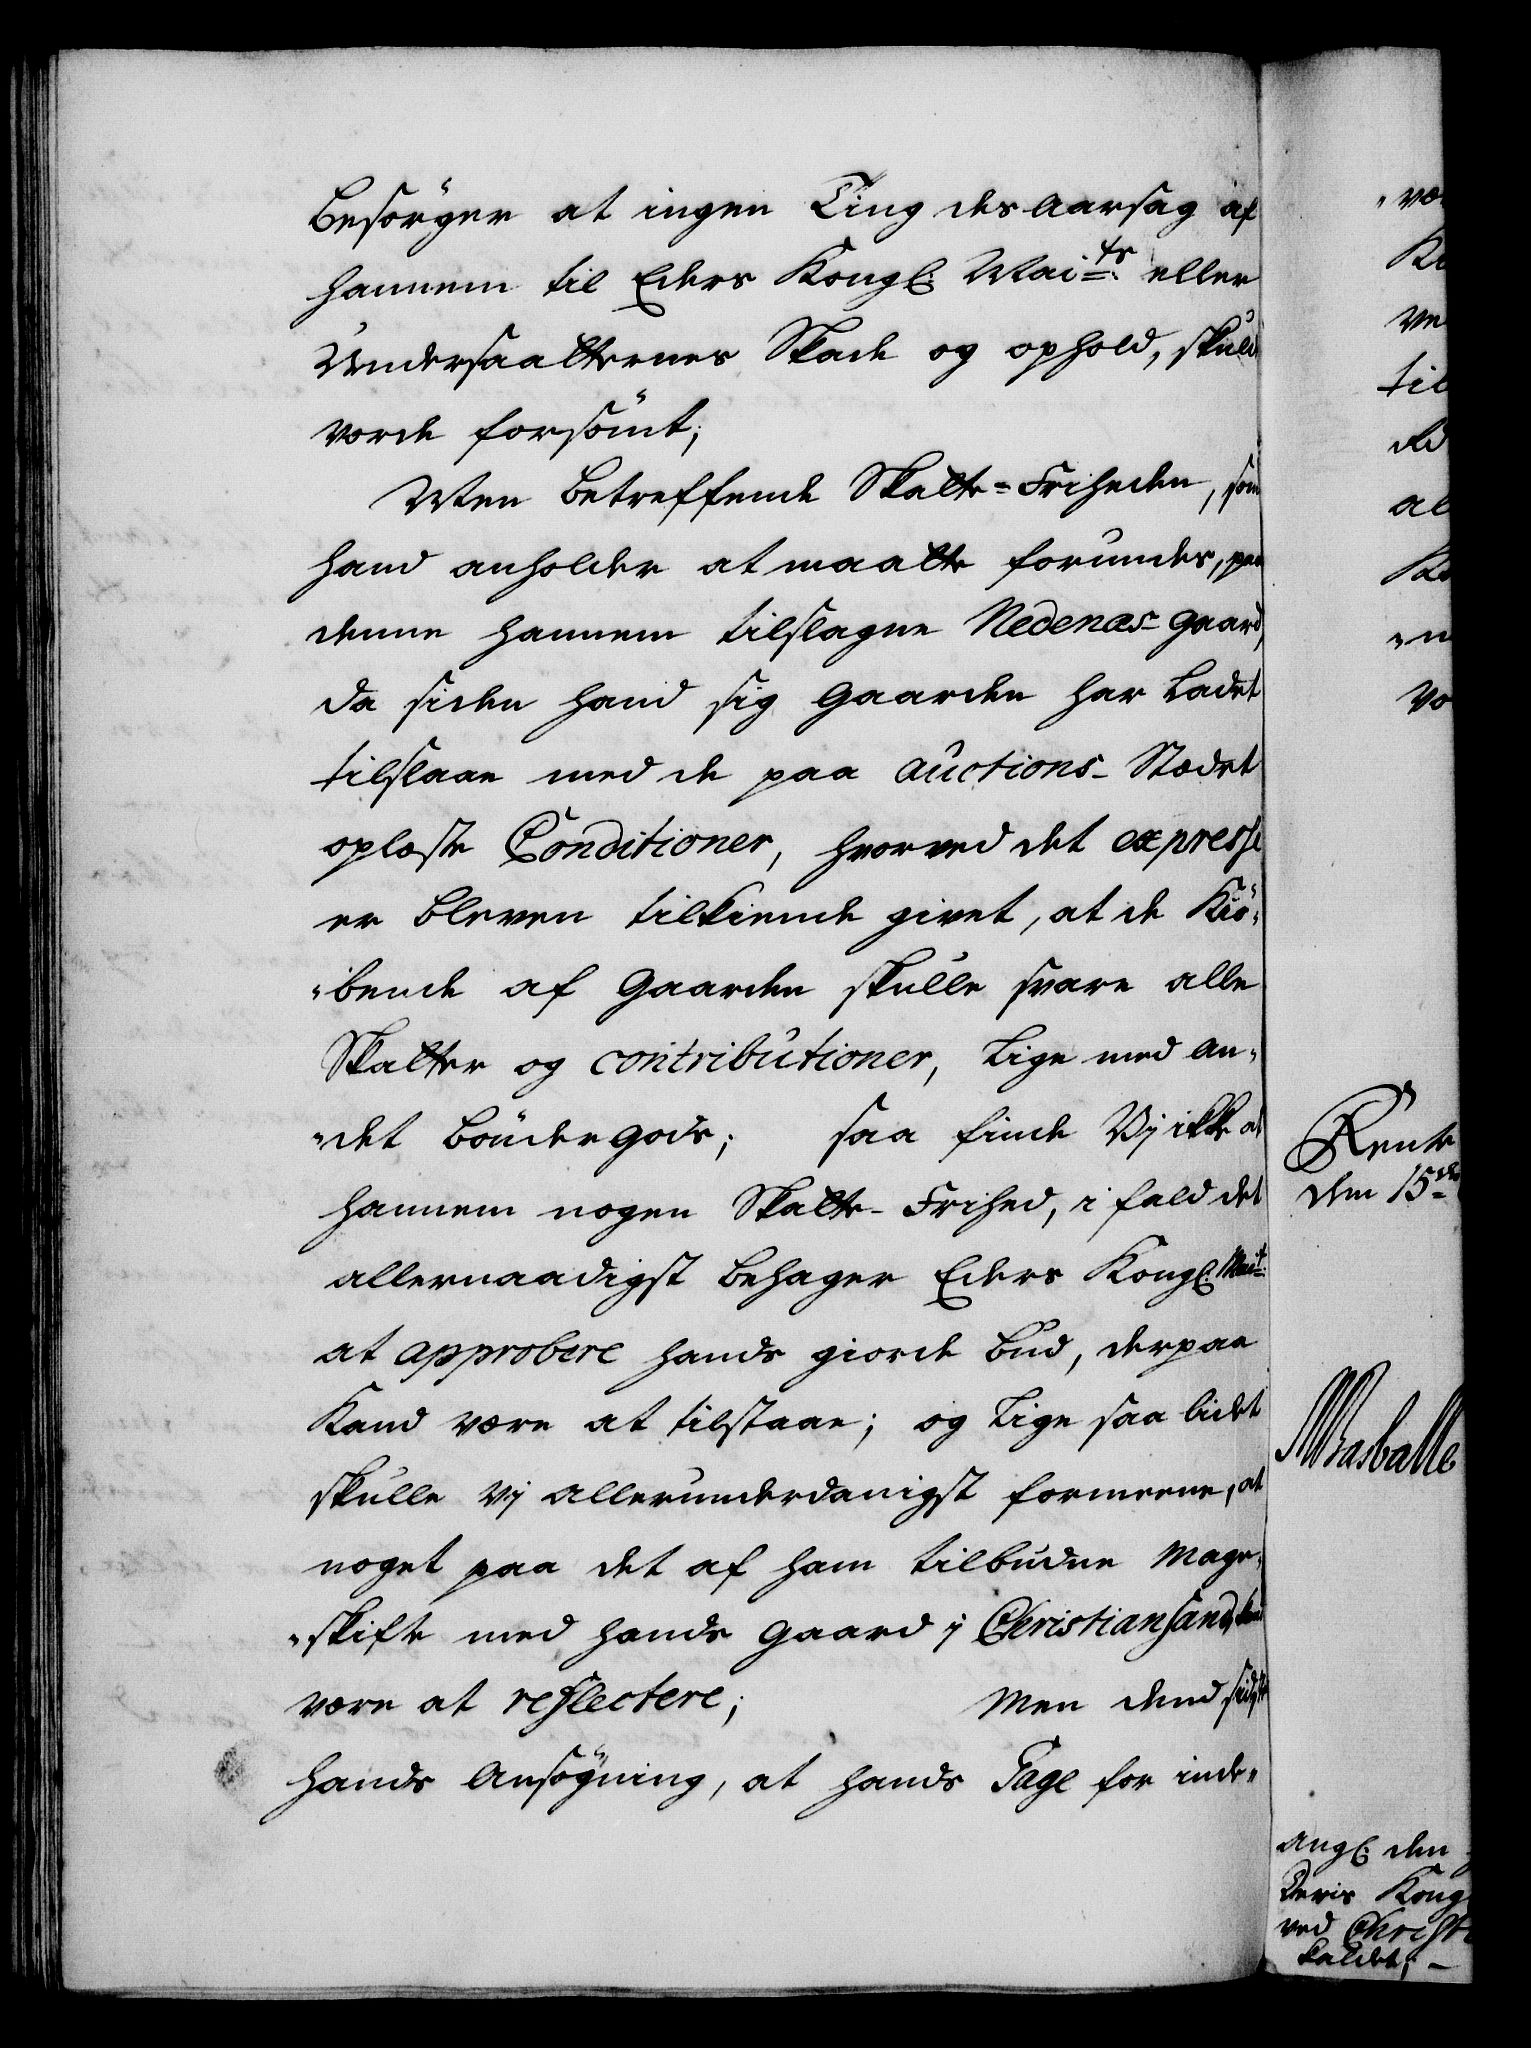 besörger at ingen Ting des Aarsag af
hannem til Eders Kongl: Mai:ts eller
Undersaatternes Skade og ophold, skuld
vorde forsömt;
Men betreffende Skatte=Friheden, som
hand anholder at maatte forundes, paa
denne hannem tilslagne Nedenæs-Gaard,
da siden hand sig Gaarden har ladet
tilslaae med de paa auctions-Stædet
oplæste Conditioner, hvorved det expresse
er bleven tilkiende givet, at de Kiö„
„bende af Gaarden skulle svare alle
Skatter og contributioner, lige med an„
„det bönder gods; saa finde Vj ikke at
hannem nogen Skatte-Frihed, i fald det
allernaadigst behager Eders Kongl: Mait:
at approbere hands giorde bud, derpaa
kand være at tilstaae; og lige saa lidet
skulle Vj allerunderdanigst formeene, at
noget paa det af ham tilbudne Mage„
„skifte med hands Gaard j Christiansand, kand
være at reflectere; Men dend sidste
hands Ansögning, at hands Gage for inde„
„væ
ve
til
al
„n
Vo
Rente
den 15de
angl: den
Deris Kong
ved Christi
kaldet; -